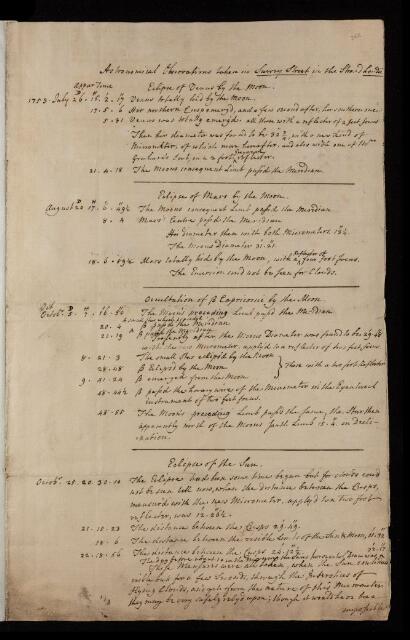 Astronomical Observations taken in Surrey Street in the Strand London
Appar. Time Eclipse of Venus by the Moon.
1753 July 26. 16. 2. 17 Venus totally hid by the Moon.
17. 5. 6 Her northern Cusp emerged, and a few seconds after, her southern one
5. 31 Venus was totally emerged: all these with a reflector of 2 feet focus
Then her diameter was found to be with a new kind of
Micrometer, of which more hereafter, and also with one of Mr.
Graham's
21. 4. 18 The Moons consequent Limb pass'd the Meridian
Eclipse of Mars by the Moon.
August 20 17. 6. 49½ The Moons consequent Limb pass'd the Meridian
8. 4 Mars' Centre pass'd the Meridian
His diameter then with both Micrometers
The Moons Diameter
18. 6. Mars totally hid by the Moon, with a reflector of four foot focus.
The Emersion could not be seen for Clouds.
Occultation of β Capricorni by the Moon.
Octobr. 5. 7. 16. 56 The Moons preceding Limb pass'd the Meridian
20. 4 β pass'd the Meridian
21. 19
Presently after the Moons Diameter was found to be 29.
with the new Micrometer applied to a reflector of two feet focus
8. 21. 3 The small Star eclips'd by the Moon
28. 48 β Eclips'd by the Moon
These with a two foot Reflector
9. 41. 24 β emerged from the Moon
48. 44½ β pass'd the horary wire of the Micrometer in the Equatorial
instrument of two feet focus.
48. 55 The Moons preceding Limb pass'd the same, the Star then
apparently north of the Moons south Limb 15. 4. in decli-
nation.
Eclipse of the Sun.
Octobr. 25. 20. 30. 10 The Eclipse had been some time began but for clouds could
not be seen till now, when the distance between the Cusps,
measured with the new Micrometer, apply'd to a two foot
reflector, was 12. 26½.
21. 15. 23 The distance between the Cusps 29. 49.
18. 6 The distance between the visible Limbs of the Sun & Moon,
22. 18. 56 The distance between the Cusps 24. 12½
These Measures were all taken, when the Sun was
visible but for a few Seconds, through the Interstices of
flying Clouds, and yet from the nature of this Micrometer
they may be very safely rely'd upon; though it would have been
impossible